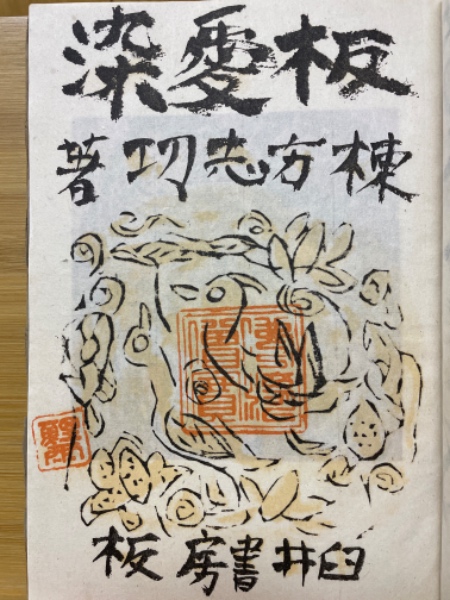 板愛染
棟方志功著
臼井書房板